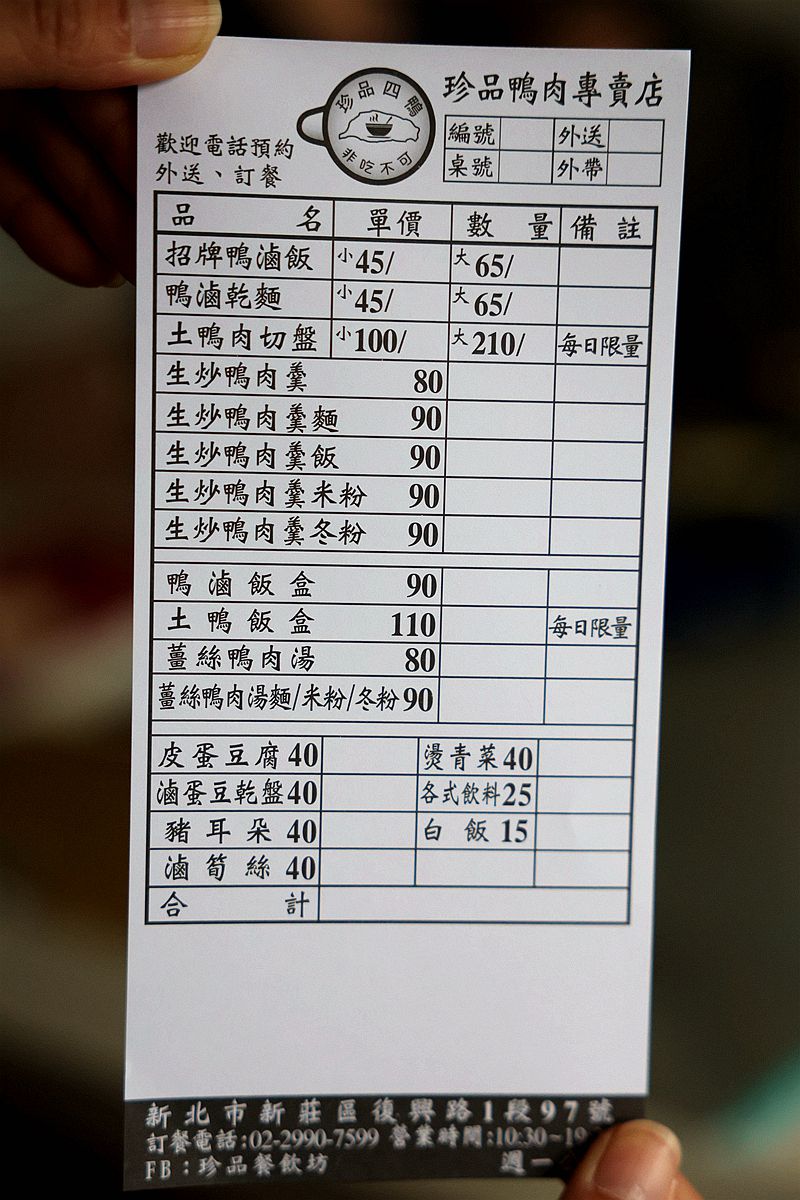 珍品四鴨
非吃不可
珍品鴨肉專賣店
歡迎電話預約
外送、訂餐
編號 外送
桌號 外帶
品名 單價 數量 備註
招牌鴨滷飯 小45/ 大65/
鴨滷乾麵 小45/ 大65/
土鴨肉切盤 小100/ 大210/ 每日限量
生炒鴨肉羹 80
生炒鴨肉羹麵 90
生炒鴨肉羹飯 90
生炒鴨肉羹米粉 90
生炒鴨肉羹冬粉 90
鴨滷飯盒 90
土鴨飯盒 110 每日限量
薑絲鴨肉湯 80
薑絲鴨肉湯麵/米粉/冬粉 90
皮蛋豆腐 40 燙青菜 40
滷蛋豆乾盤 40 各式飲料 25
豬耳朵 40 白飯 15
滷筍絲 40
合計
新北市新莊區復興路1段97號
訂餐電話:02-2990-7599 營業時間:10:30~19
FB:珍品餐飲坊 週一